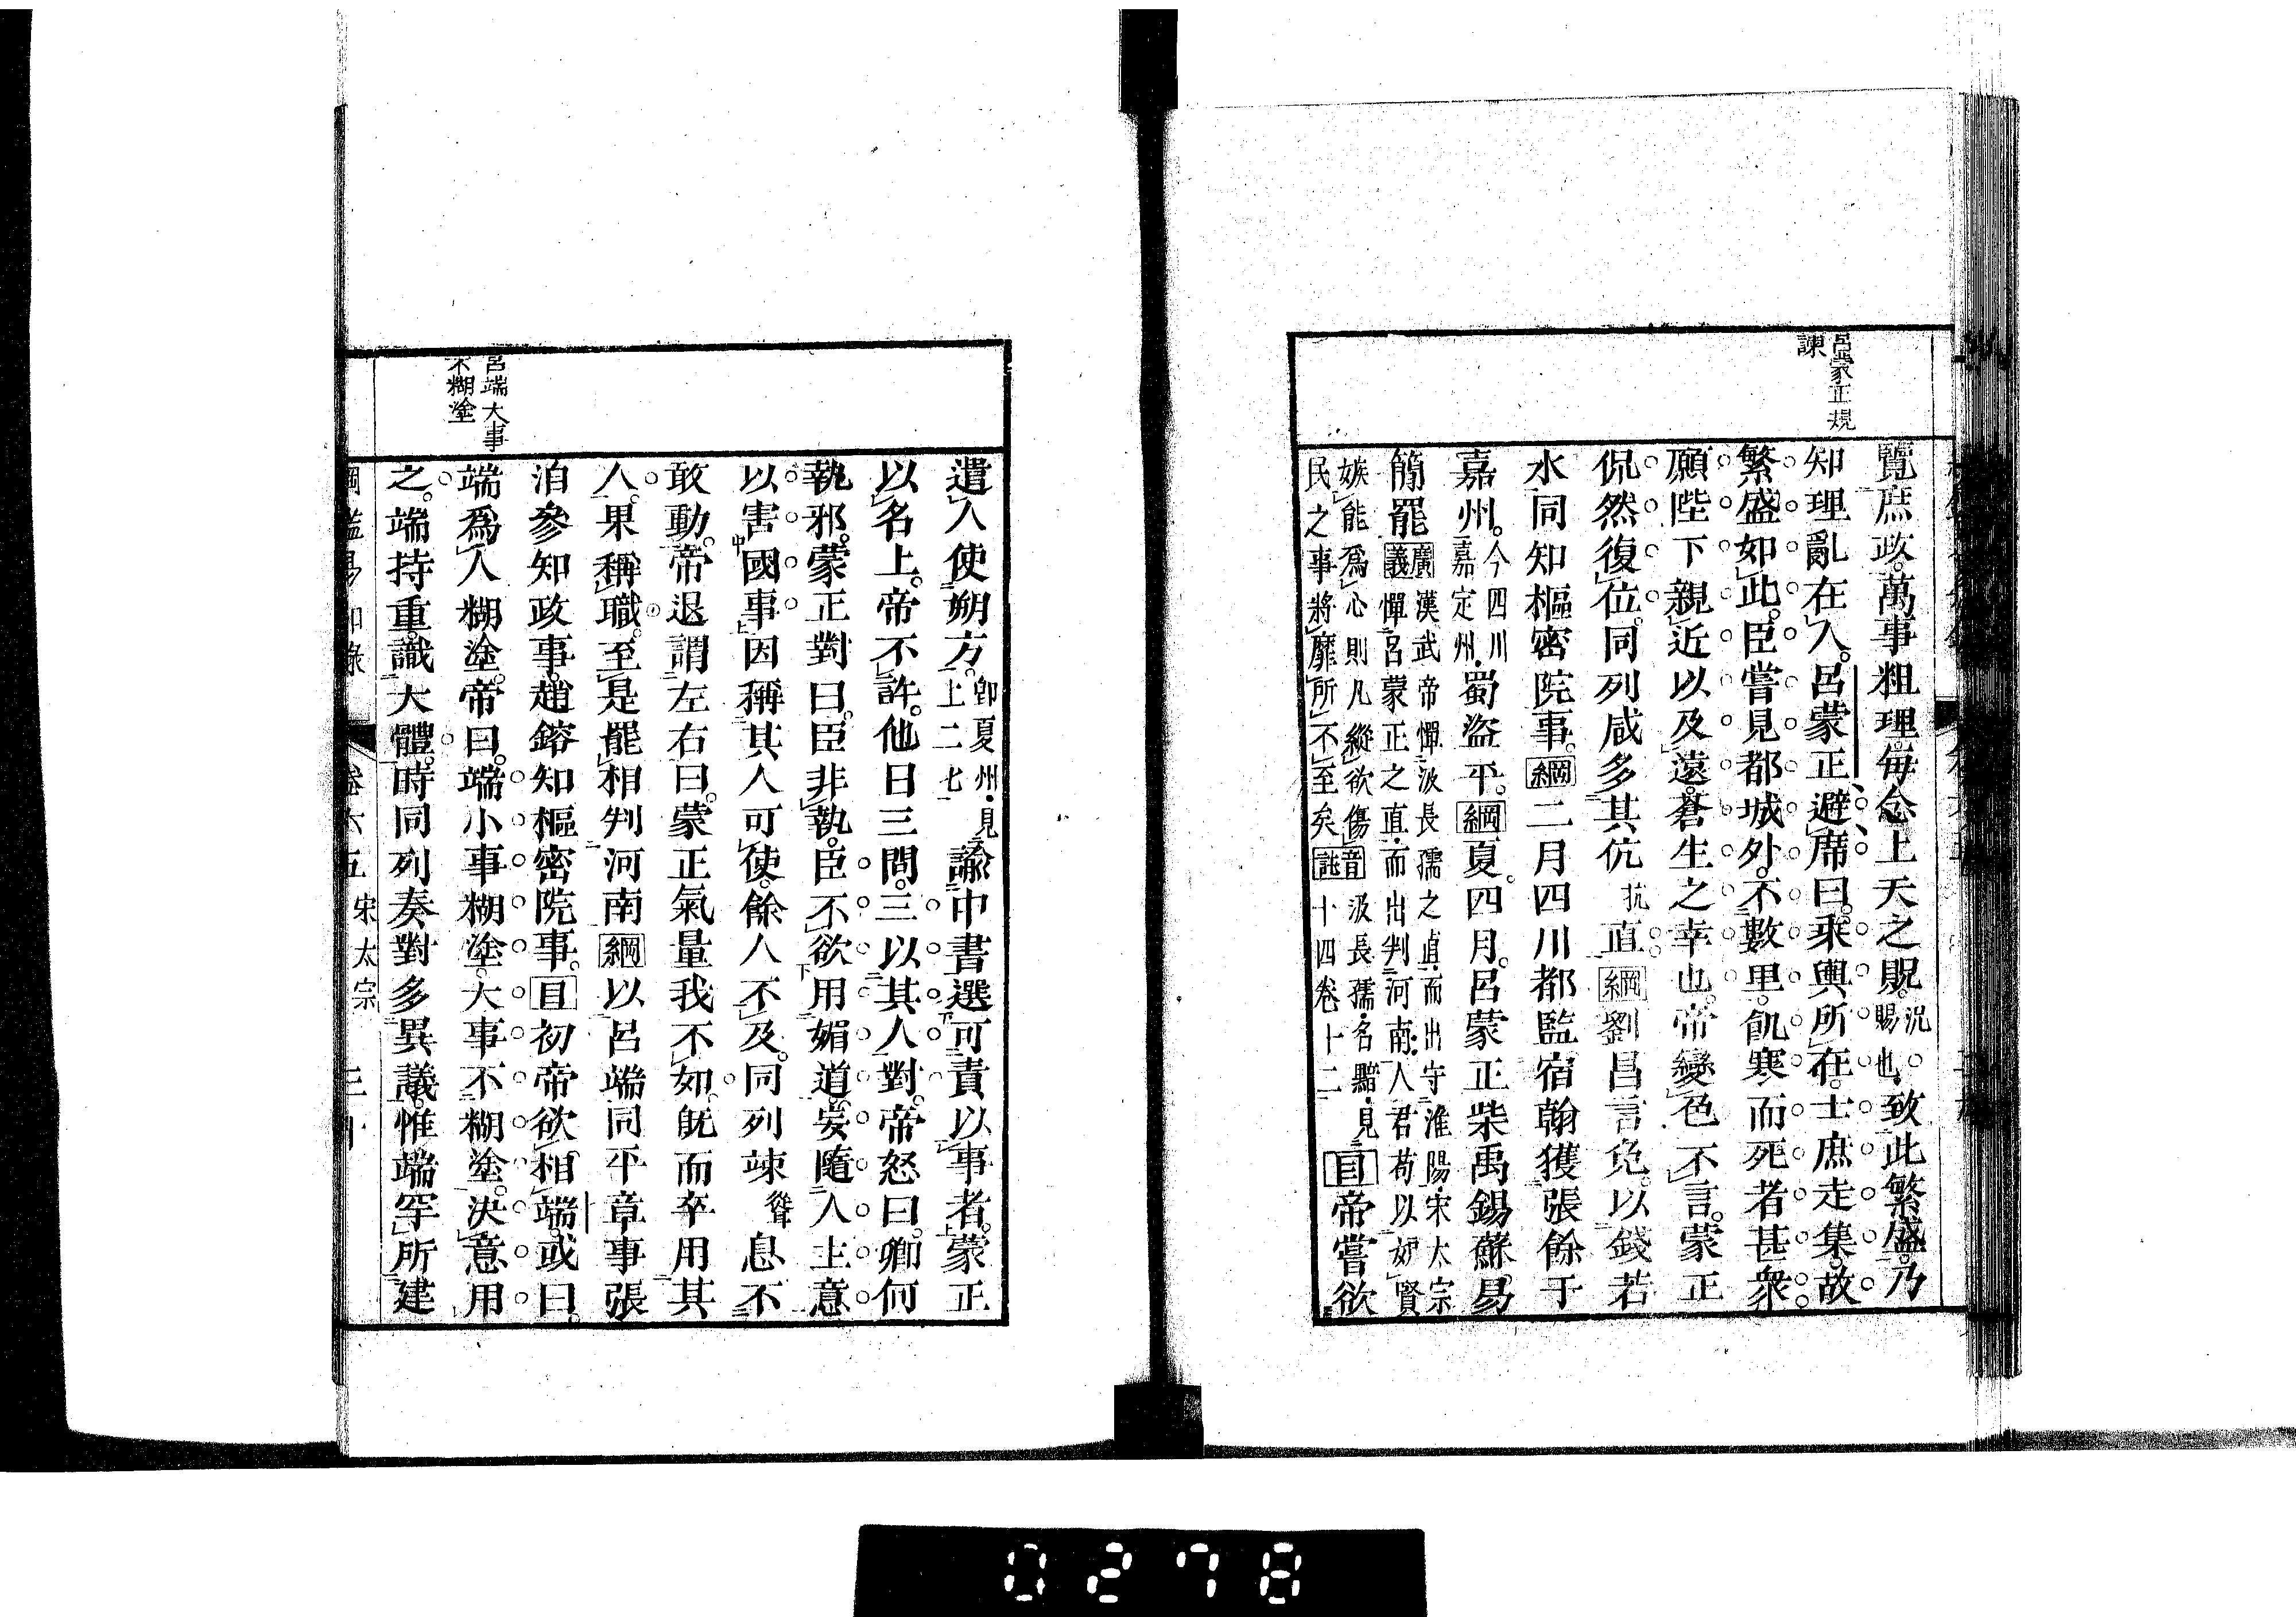 呂蒙正規
諫
覽庶政萬事粗理每念上天之貺況賜也致此繁盛乃
知理亂在人呂蒙正避席曰乘輿所在士庶走集故
繁盛如此臣嘗見都城外不數里飢寒而死者甚衆
願陛下親近以及遠蒼生之幸也帝變色不言蒙正
侃然復位同列咸多其伉抗直綱劉昌言免以錢若
水同知樞密院事綱二月四川都監宿翰獲張餘于
嘉州今四川嘉定州蜀盜平綱夏四月呂蒙正柴禹錫蘇易
簡罷廣義漢武帝憚汲長孺之直而出守淮陽宋太宗憚呂蒙正之直而出判河南人君苟以妒賢
嫉能爲心則凡縱欲傷民之事將靡所不至矣音註汲長孺名黯見十四卷十二目帝嘗欲
遣人使朔方卽夏州見上二七諭中書選可責以事者蒙正
以名上帝不許他日三問三以其人對帝怒曰卿何
執邪蒙正對曰臣非執臣不欲用媚道妄隨人主意
以害國事因稱其人可使餘人不及同列竦聳息不
敢動帝退謂左右曰蒙正氣量我不如旣而卒用其
人果稱職至是罷相判河南綱以呂端同平章事張
洎參知政事趙鎔知樞密院事目初帝欲相端或曰
端爲人糊塗帝曰端小事糊塗大事不糊塗決意用
之端持重識大體時同列奏對多異議惟端罕所建
呂端大事
不糊塗
綱鑑易知錄 卷六五 宋太宗
0278